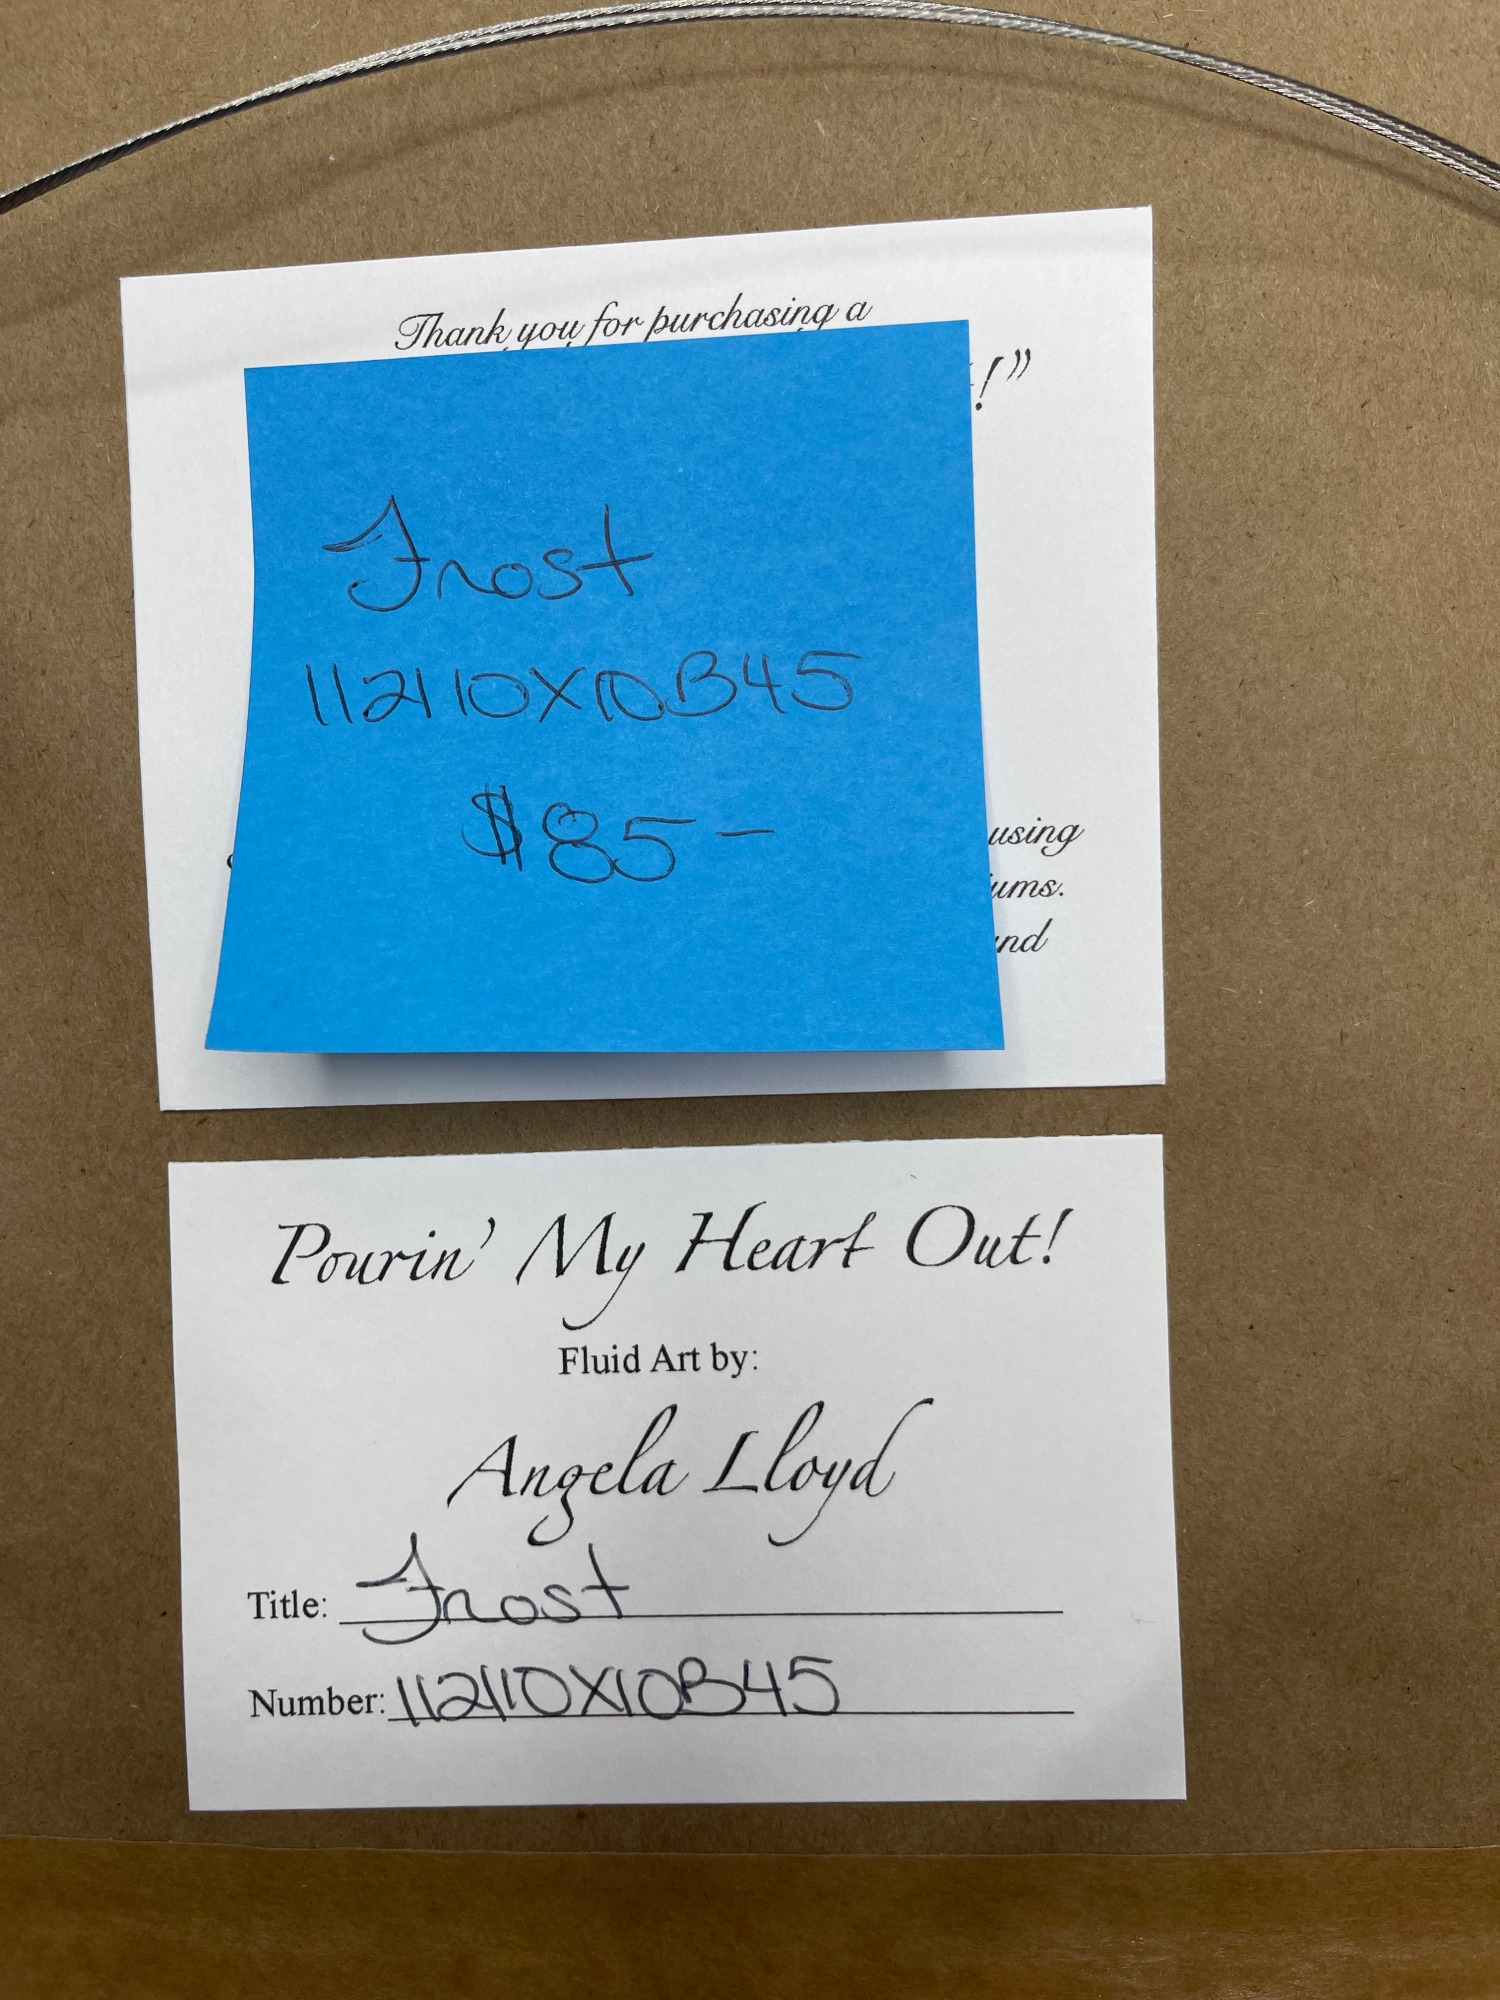 Thank you for purchasing a
!”
Frost
112110X10B45
$85-
using
and
Pourin' My Heart Out!
Fluid Art by:
Angela Lloyd
Title: Frost
Number: 112110X10B45